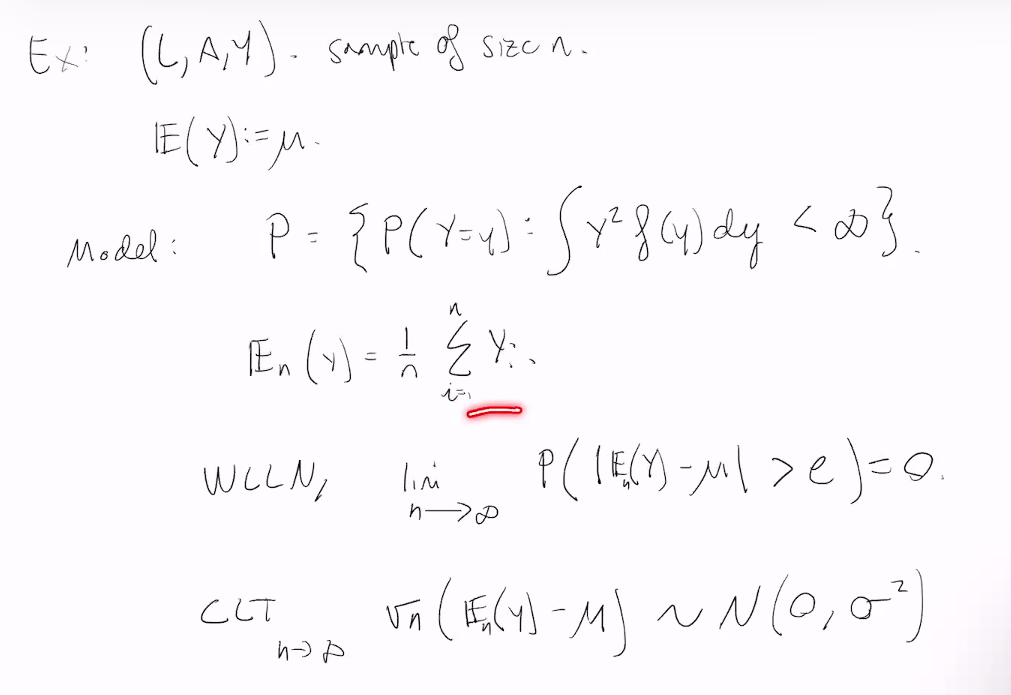 Ex: (L,A,Y). sample of size n.
𝔼(Y):=μ.
Model: P = {P(Y=y): ∫ y² f(y) dy < ∞}.
𝔼ₙ(Y) = 1/n ∑ᵢ₌₁ⁿ Yᵢ.
WLLN, lim n→∞ P(|𝔼ₙ(Y)-μ| > e) = 0.
CLT n→∞ √n (𝔼ₙ(Y)-μ) ~ N(0, σ²)